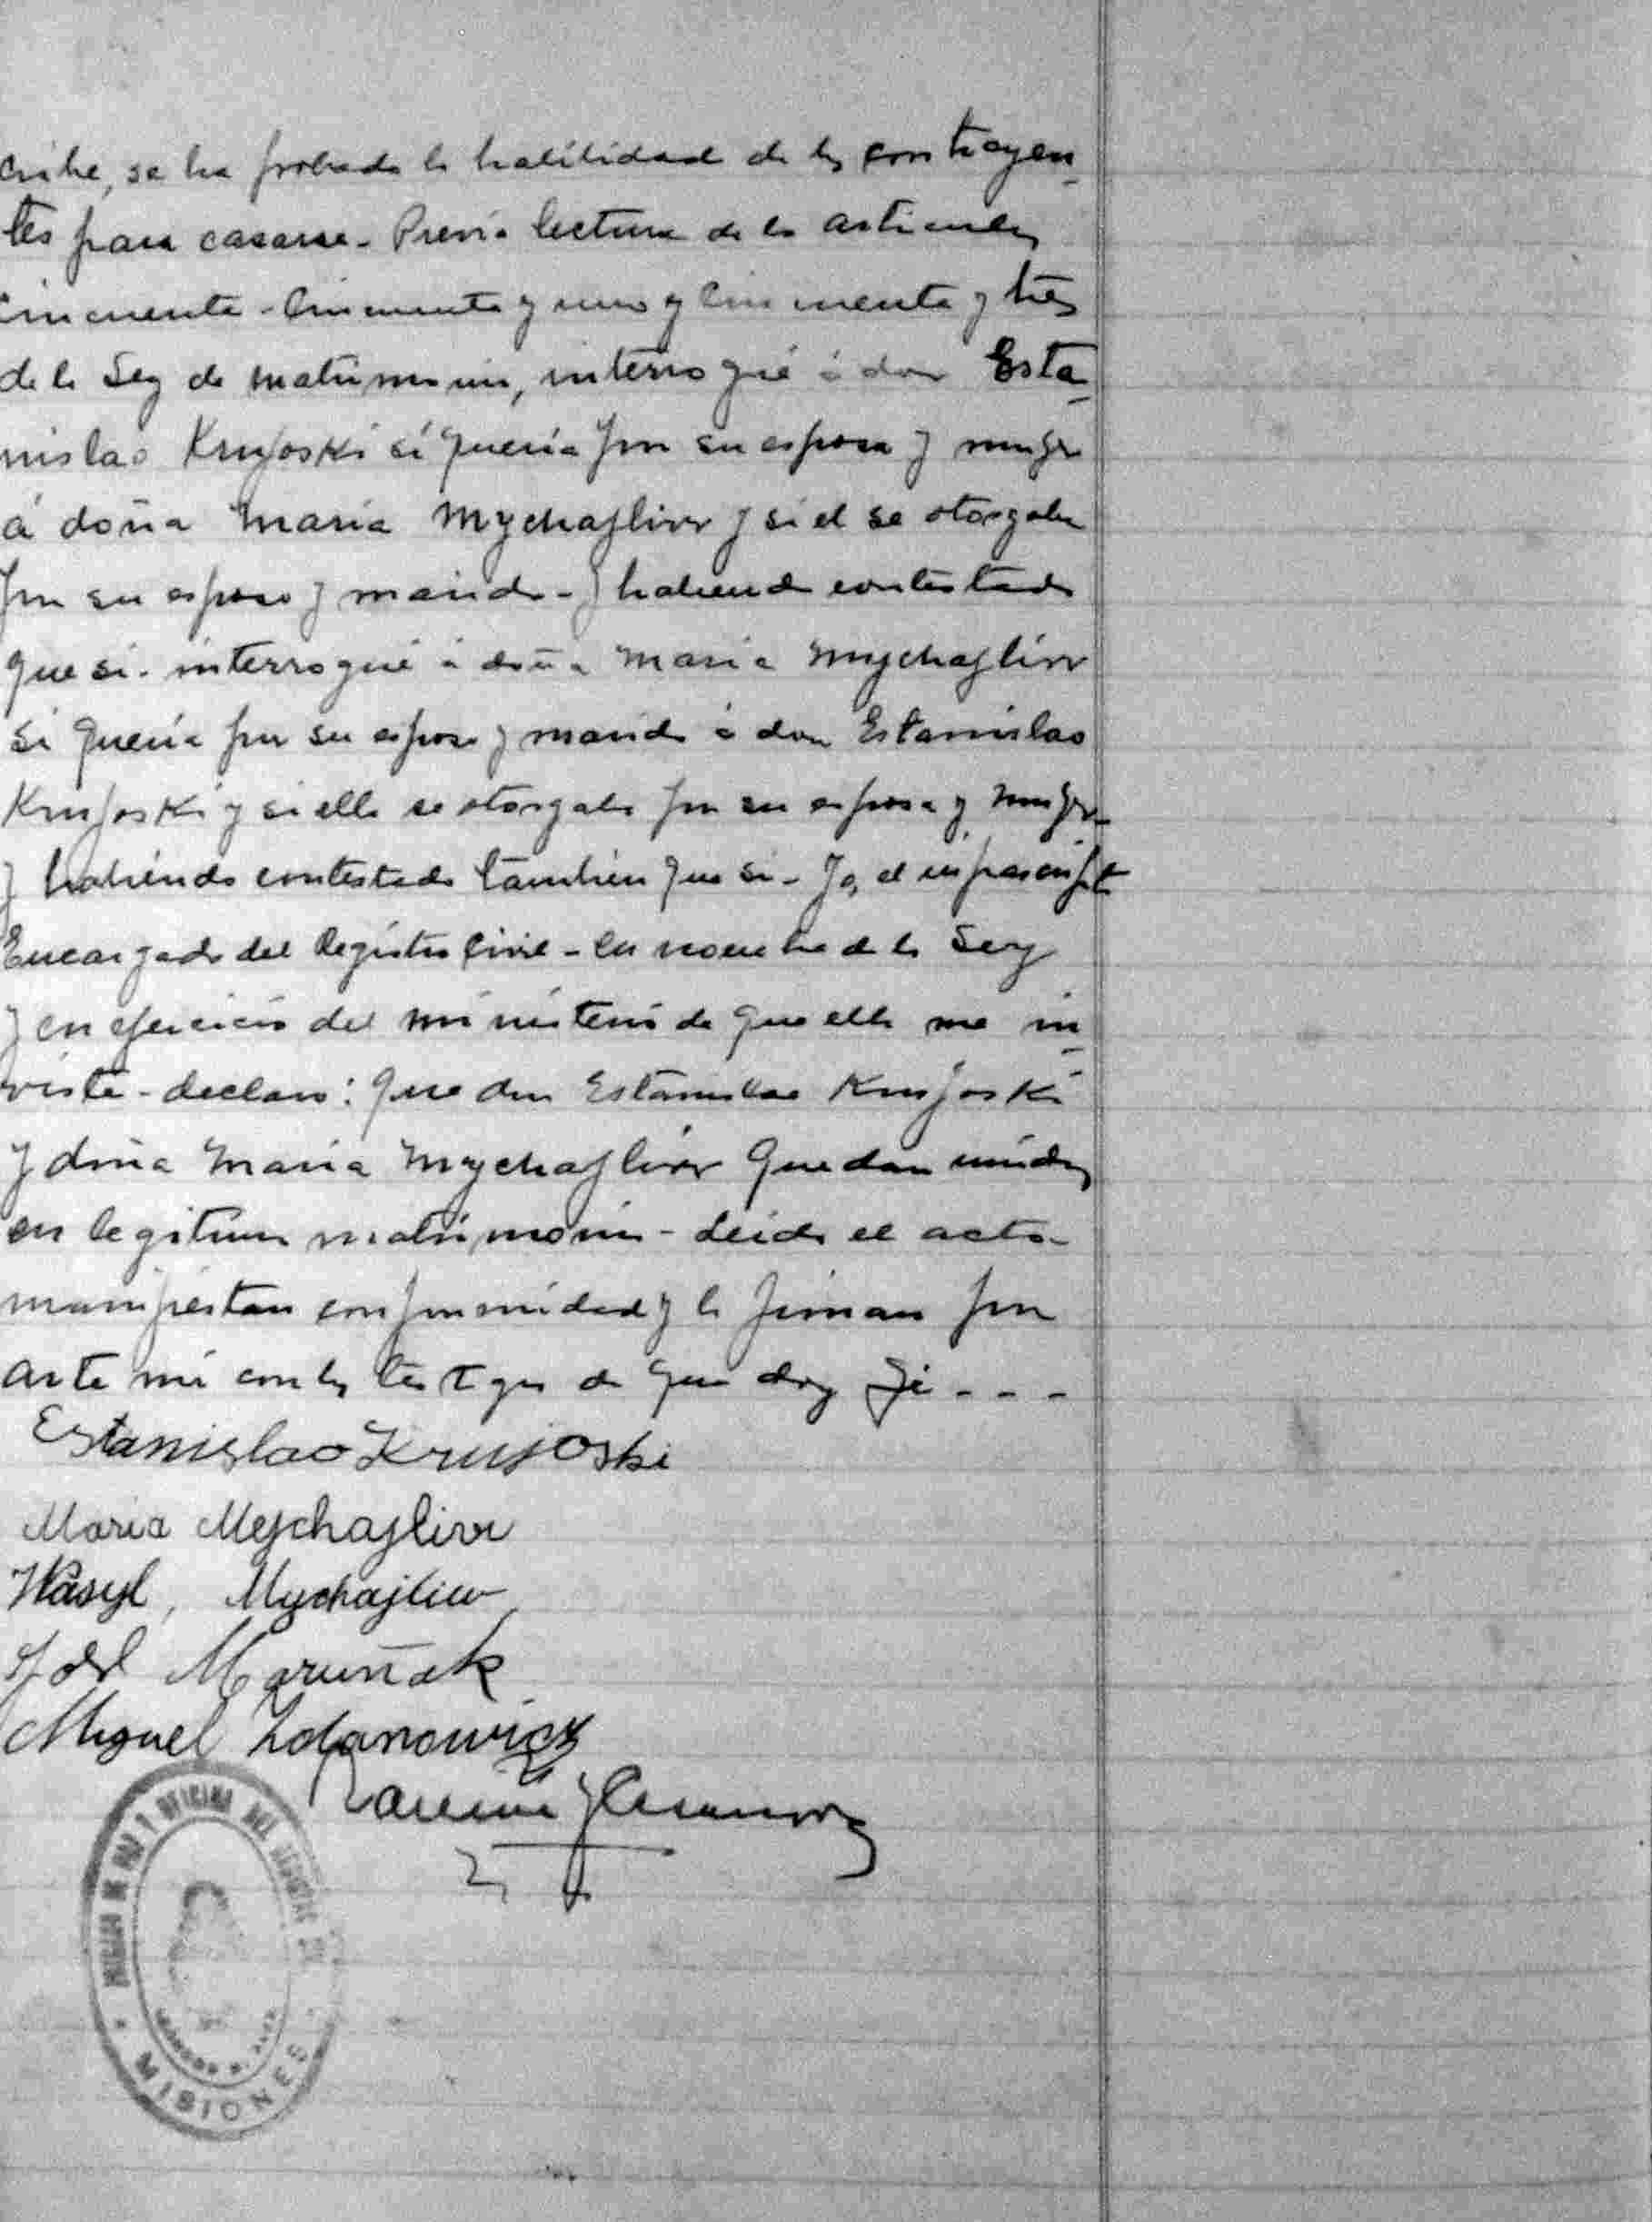 cribe, se ha probado la habilidad de los contrayen-
tes para casarse - Previa lectura de los articulos
cincuenta - cincuenta y uno y cincuenta y tres
de la Ley de matrimonio, interrogué á don Esta-
nislao Krujoski si queria por su esposa y mujer
á doña Maria Mychajliw y si el se otorgaba
por su esposo y marido - y habiendo contestado
que si - interrogué a doña Maria Mychajliw
si queria por su esposo y marido á don Estanislao
Krujoski y si ella se otorgaba por su esposa y mujer -
y habiendo contestado tambien que si - Yo, el infrascripto
Encargado del Registro Civil - en nombre de la Ley
y en ejercicio del ministerio de que ella me in-
viste - declaro: que don Estanislao Krujoski
y doña Maria Mychajliw quedan unidos
en legitimo matrimonio - Leida el acta -
manifiestan conformidad y la firman por
ante mi con los testigos de que doy fé - - -
Estanislao Krujoski
Maria Mychajliw
Wasyl, Mychajliw
Maruñak
Miguel Zdanowicz
OFICINA DEL REGISTRO
MISIONES